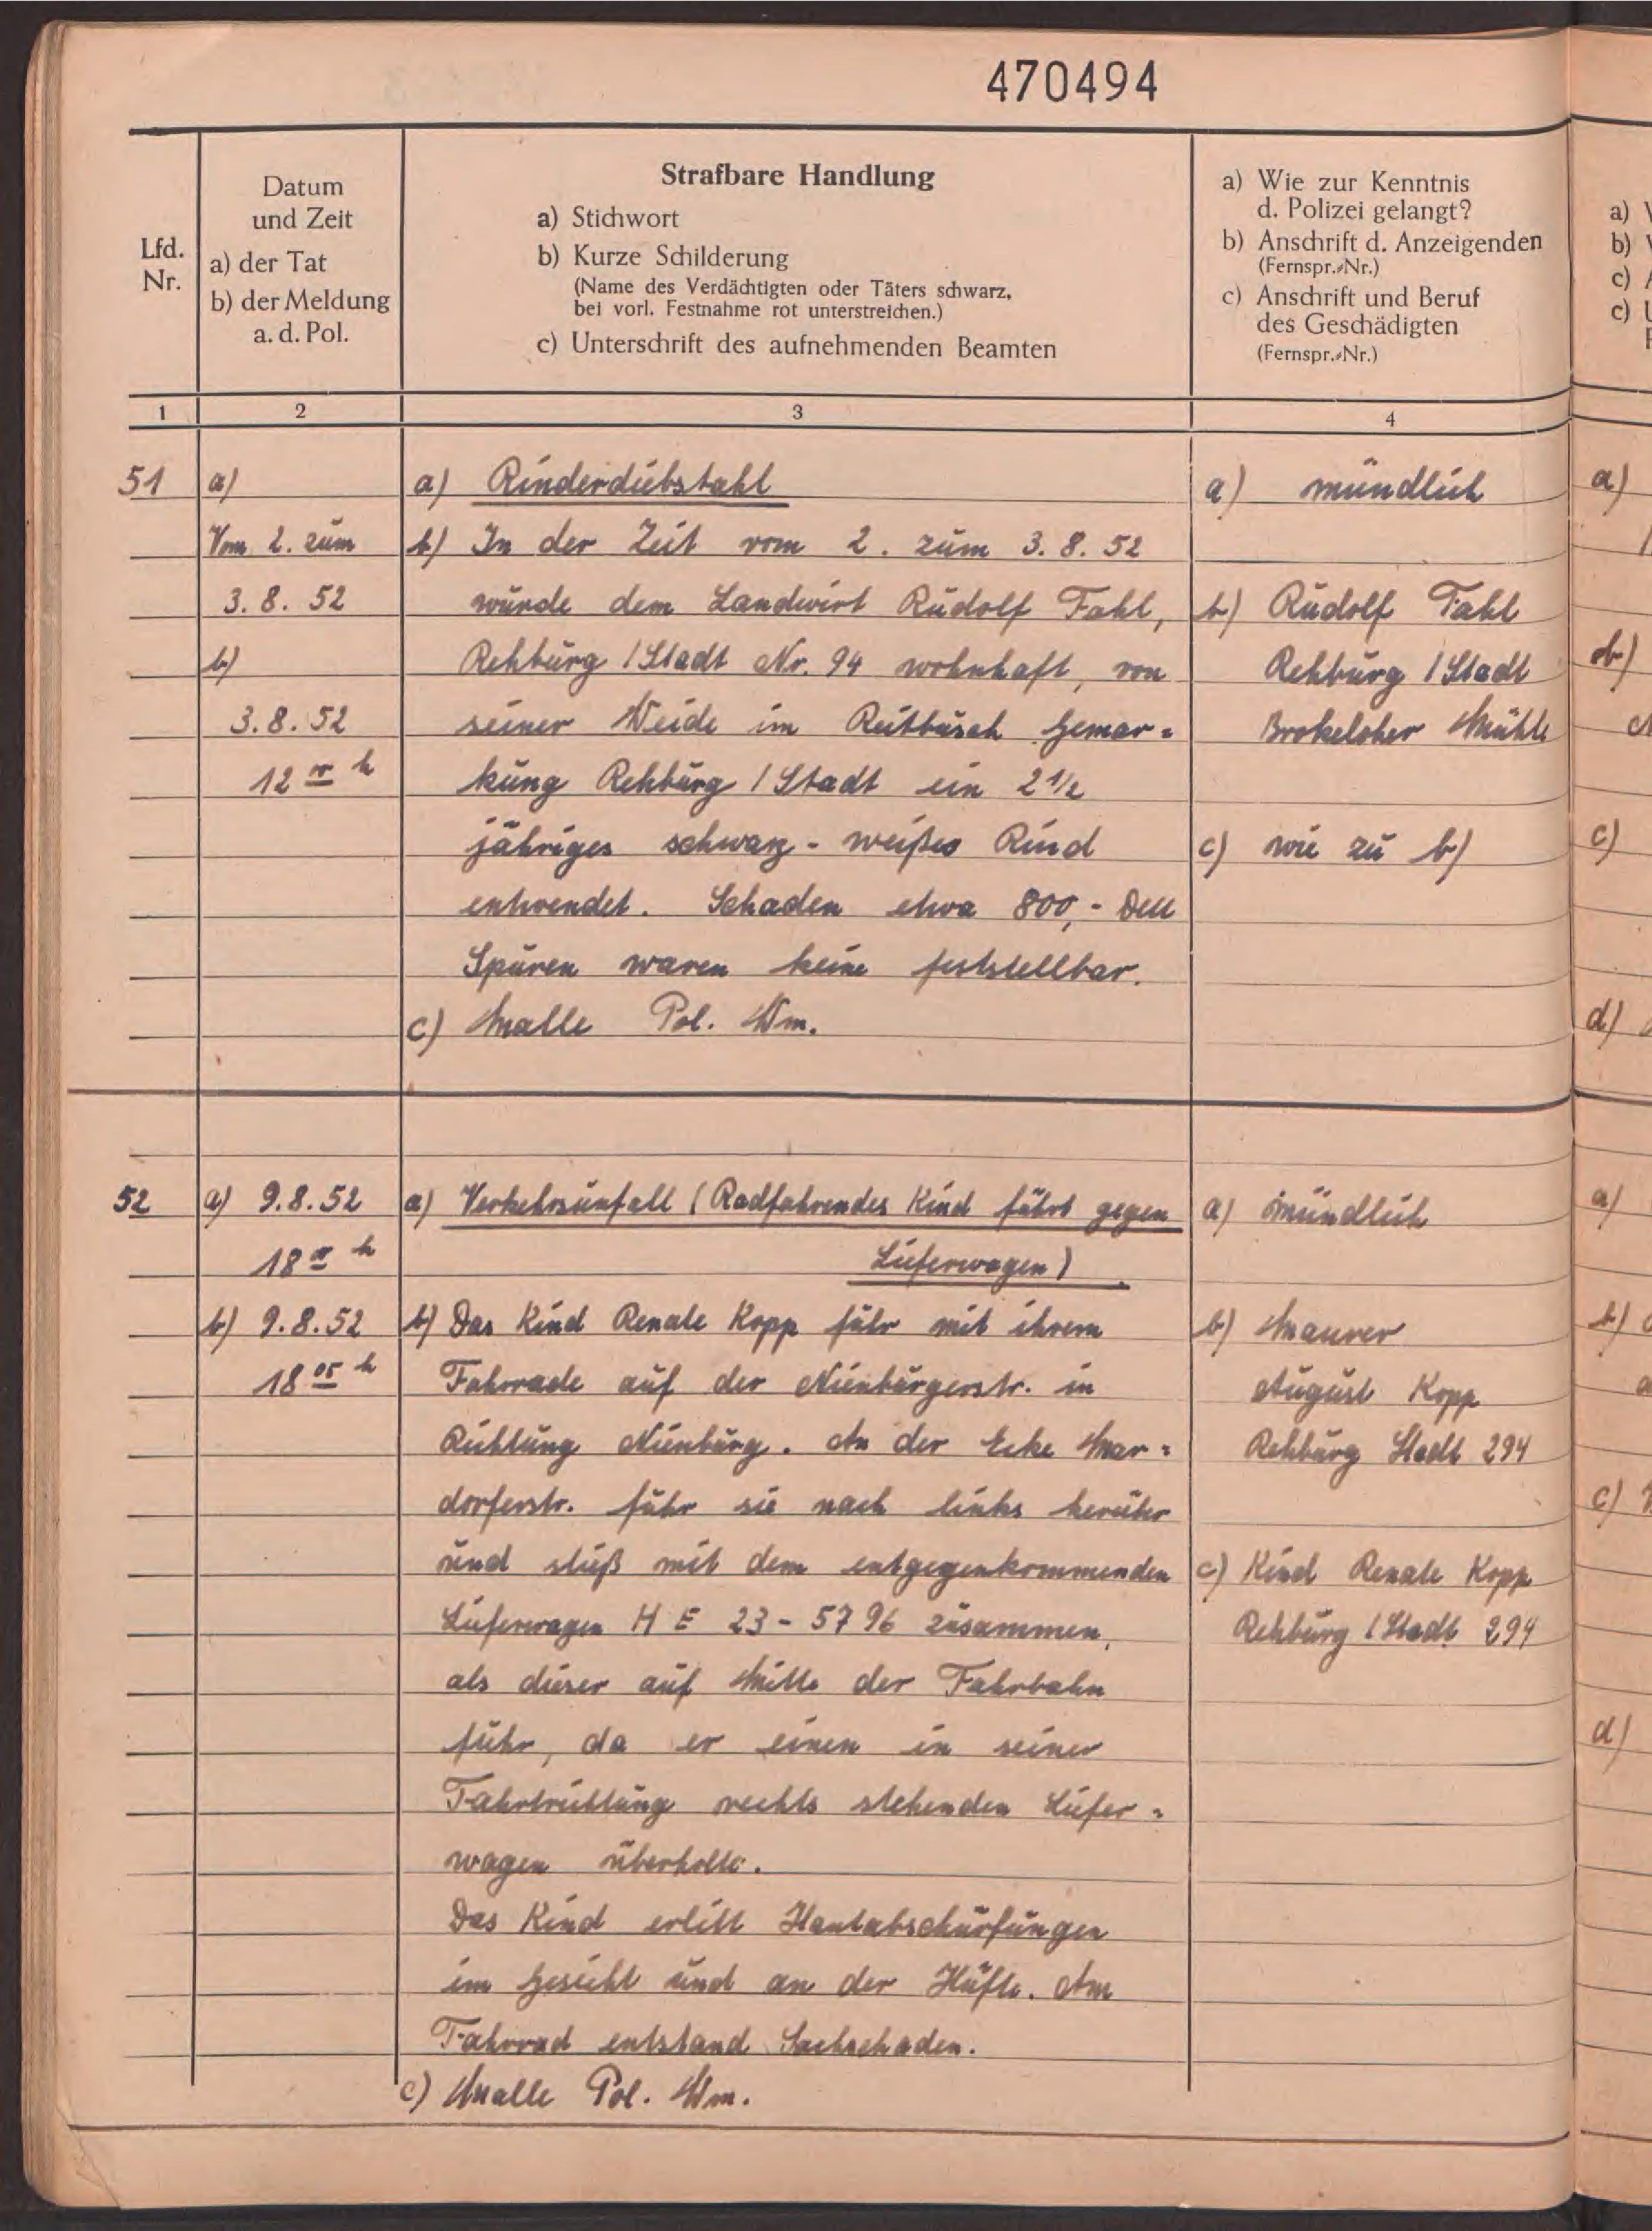 470494
Lfd.
Nr.
Datum
und Zeit
a) der Tat
b) der Meldung
a. d. Pol.
Strafbare Handlung
a) Stichwort
b) Kurze Schilderung
(Name des Verdächtigten oder Täters schwarz,
bei vorl. Festnahme rot unterstreichen.)
c) Unterschrift des aufnehmenden Beamten
a) Wie zur Kenntnis
d. Polizei gelangt?
b) Anschrift d. Anzeigenden
(Fernspr.-Nr.)
c) Anschrift und Beruf
des Geschädigten
(Fernspr.-Nr.)
1
2
3
4
51
a)
Vom 2. zum
3. 8. 52
b)
3. 8. 52
12 00 h
a) Rinderdiebstahl
b) In der Zeit vom 2. zum 3. 8. 52
wurde dem Landwirt Rudolf Fahl,
Rehburg / Stadt Nr. 94 wohnhaft, von
seiner Weide im Reitbusch Gemar=
kung Rehburg / Stadt ein 2 1/2
jähriges schwarz - weißes Rind
entwendet. Schaden etwa 800,- DM
Spuren waren keine feststellbar.
c) Malle Pol. Wm.
a) mündlich
b) Rudolf Fahl
Rehburg / Stadt
Brokeloher Mühle
c) wie zu b)
52
a) 9. 8. 52
18 00 h
b) 9. 8. 52
18 05 h
a) Verkehrsunfall (Radfahrendes Kind fährt gegen
Lieferwagen)
b) Das Kind Renate Kopp fuhr mit ihrem
Fahrrade auf der Nienburgerstr. in
Richtung Nienburg. An der Ecke Mar=
dorferstr. fuhr sie nach links herüber
und stieß mit dem entgegenkommenden
Lieferwagen H E 23 - 57 96 zusammen,
als dieser auf Mitte der Fahrbahn
fuhr, da er einen in seiner
Fahrtrichtung rechts stehenden Liefer=
wagen überholte.
Das Kind erlitt Hautabschürfungen
im Gesicht und an der Hüfte. Am
Fahrrad entstand Sachschaden.
c) Malle Pol. Wm.
a) mündlich
b) Maurer
August Kopp
Rehburg Stadt 294
c) Kind Renate Kopp
Rehburg / Stadt 294
a)
b)
c)
c)
a)
b)
c)
d)
a)
b)
c)
d)